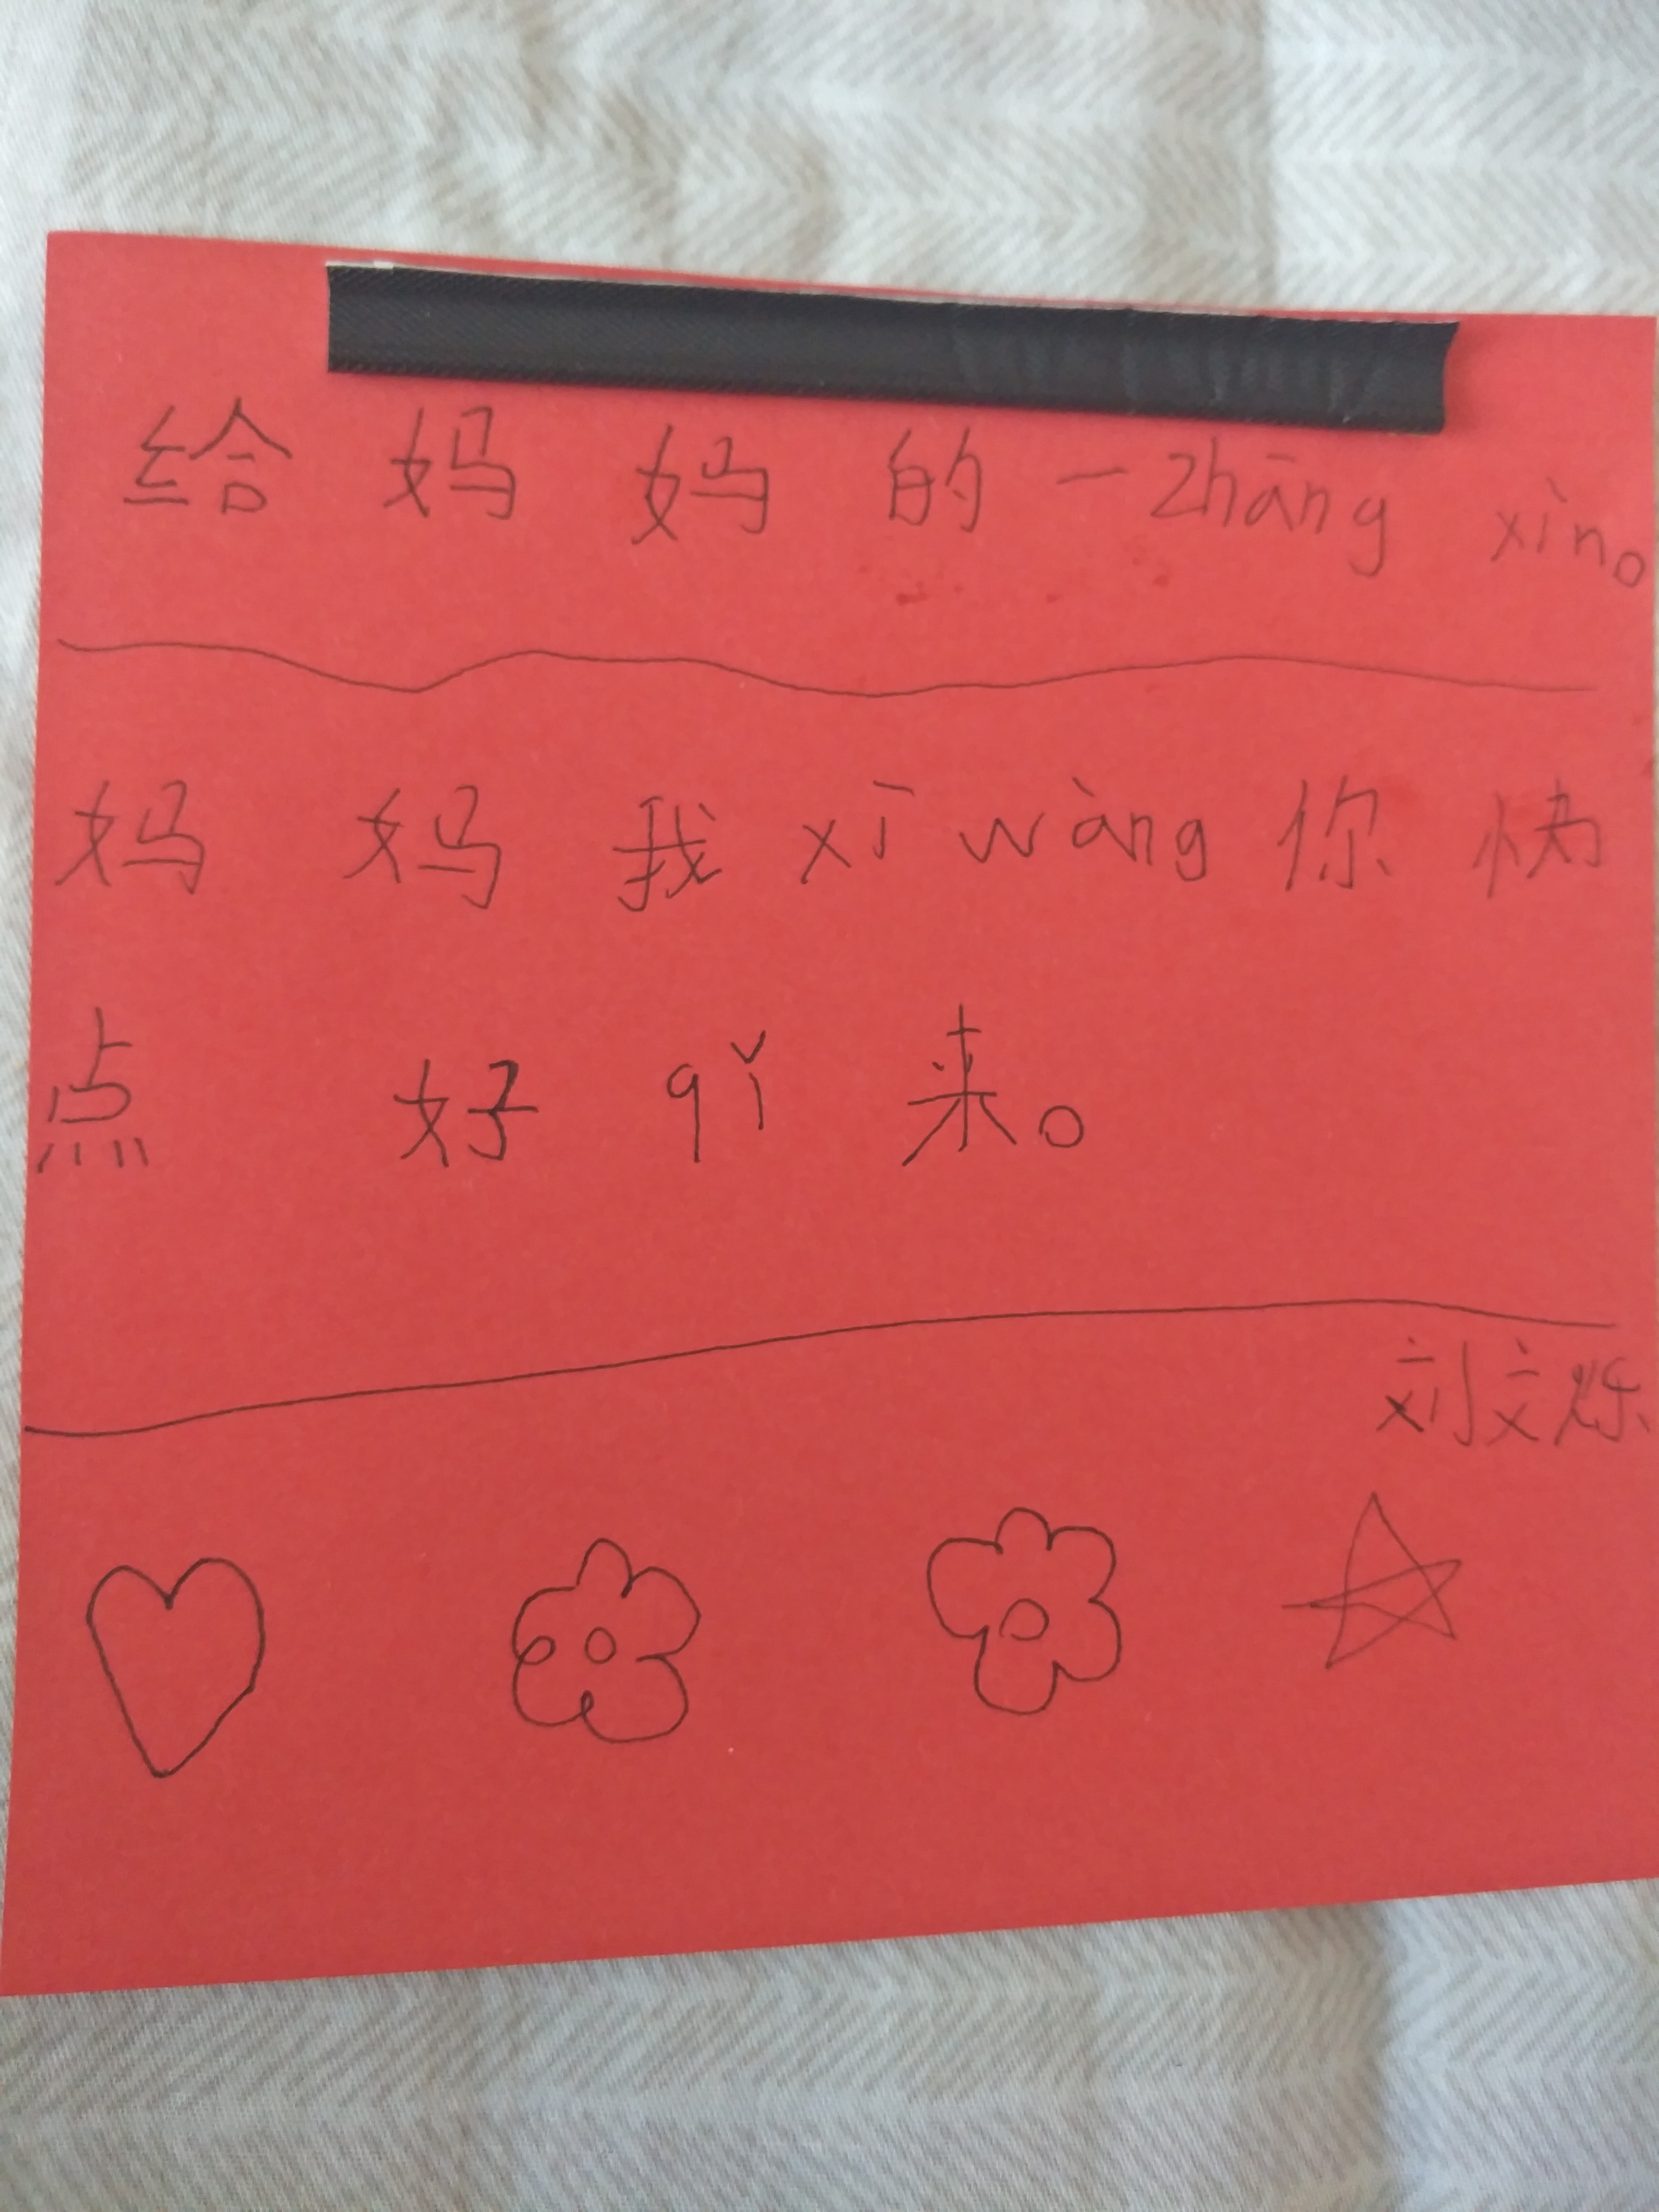 给妈妈的一zhāng xìn。
妈妈我xī wàng你快
点好qǐ来。
刘文烁